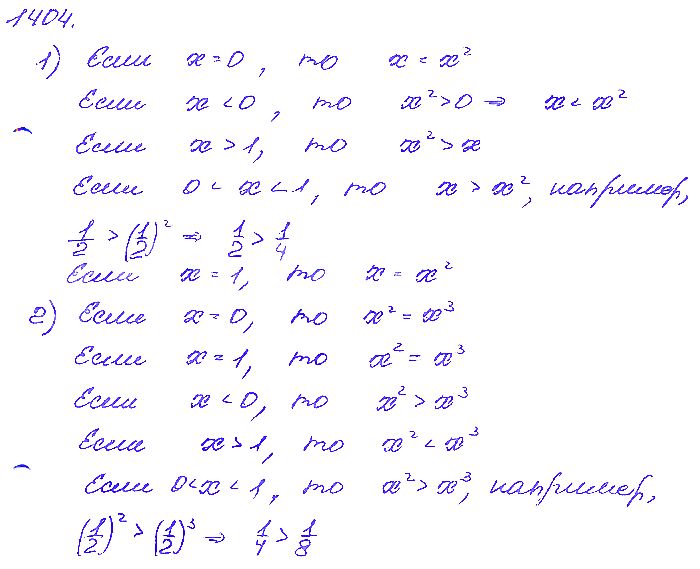 1404.
1) Если x = 0, то x = x²
Если x < 0, то x² > 0 ⇒ x < x²
Если x > 1, то x² > x
Если 0 < x < 1, то x > x², например,
1/2 > (1/2)² ⇒ 1/2 > 1/4
Если x = 1, то x = x²
2) Если x = 0, то x² = x³
Если x = 1, то x² = x³
Если x < 0, то x² > x³
Если x > 1, то x² < x³
Если 0 < x < 1, то x² > x³, например,
(1/2)² > (1/2)³ ⇒ 1/4 > 1/8